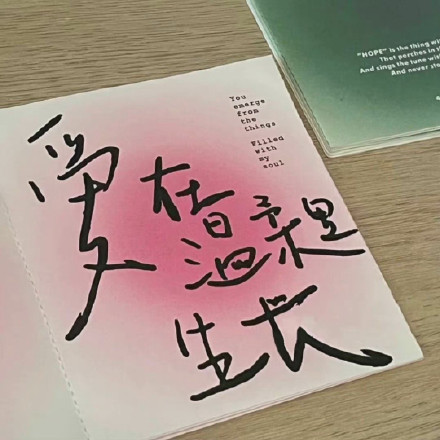 You
emerge
from
the
things
Filled
with
my
soul
爱
在
温柔里
生长
"HOPE" is the thing wi
That perches in th
And sings the tune with
And never sto